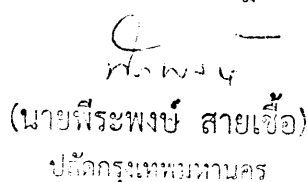 (นายพีระพงษ์ สายเชื้อ)
ปลัดกรุงเทพมหานคร